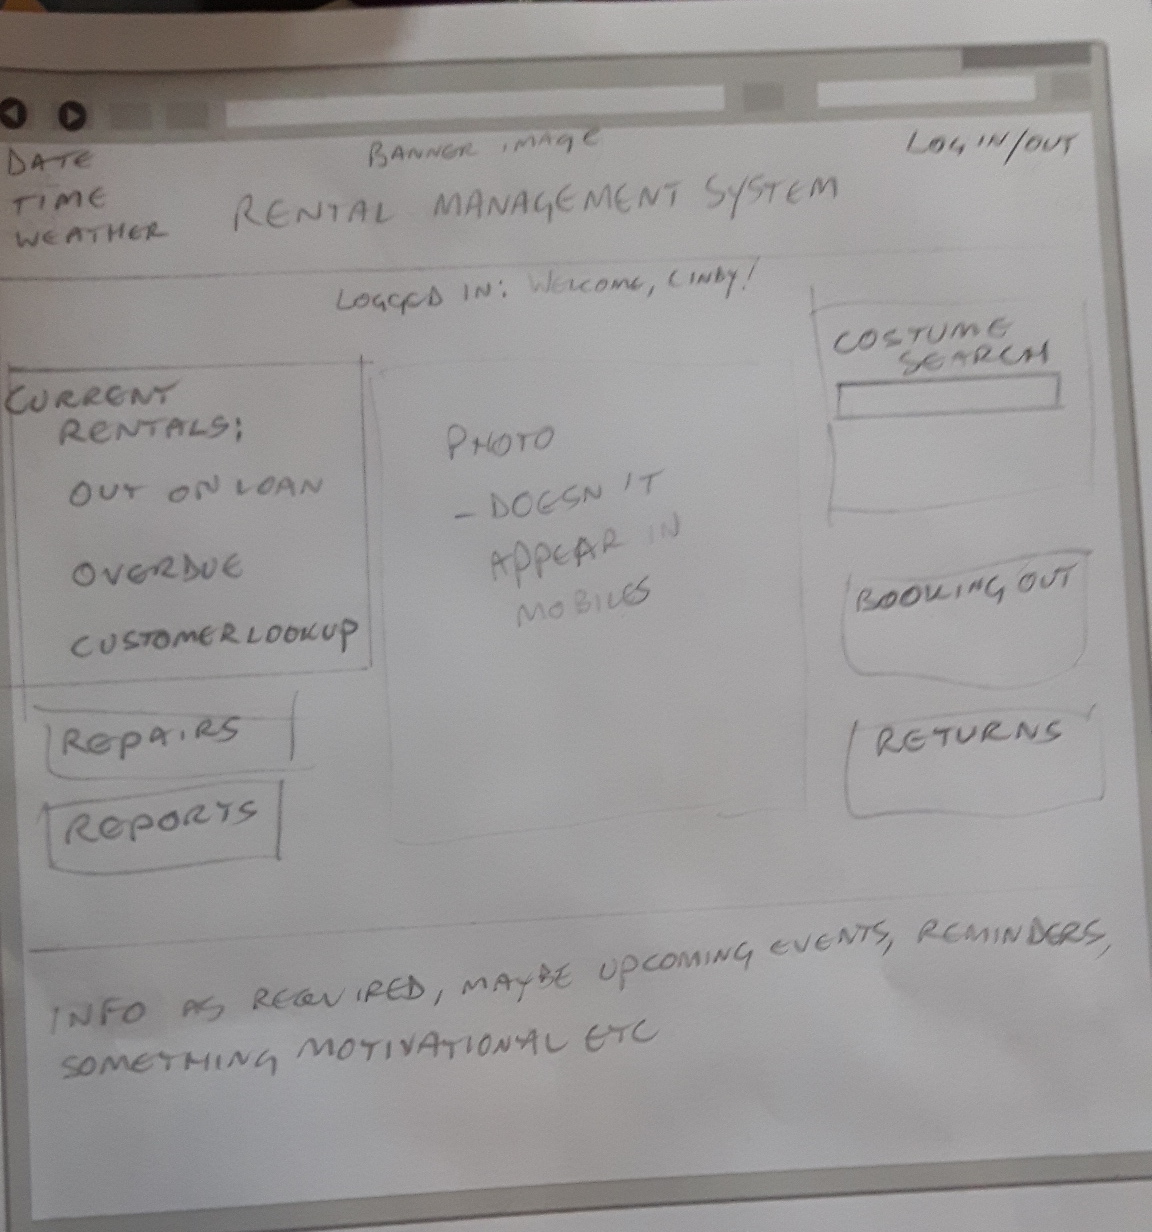 DATE
TIME
WEATHER
BANNER IMAGE
RENTAL MANAGEMENT SYSTEM
LOG IN/OUT
LOGGED IN: WELCOME, CINDY!
CURRENT
RENTALS:
OUT ON LOAN
OVERDUE
CUSTOMER LOOKUP
REPAIRS
REPORTS
PHOTO
- DOESN'T
APPEAR IN
MOBILES
COSTUME
SEARCH
BOOKING OUT
RETURNS
INFO AS REQUIRED, MAYBE UPCOMING EVENTS, REMINDERS,
SOMETHING MOTIVATIONAL ETC